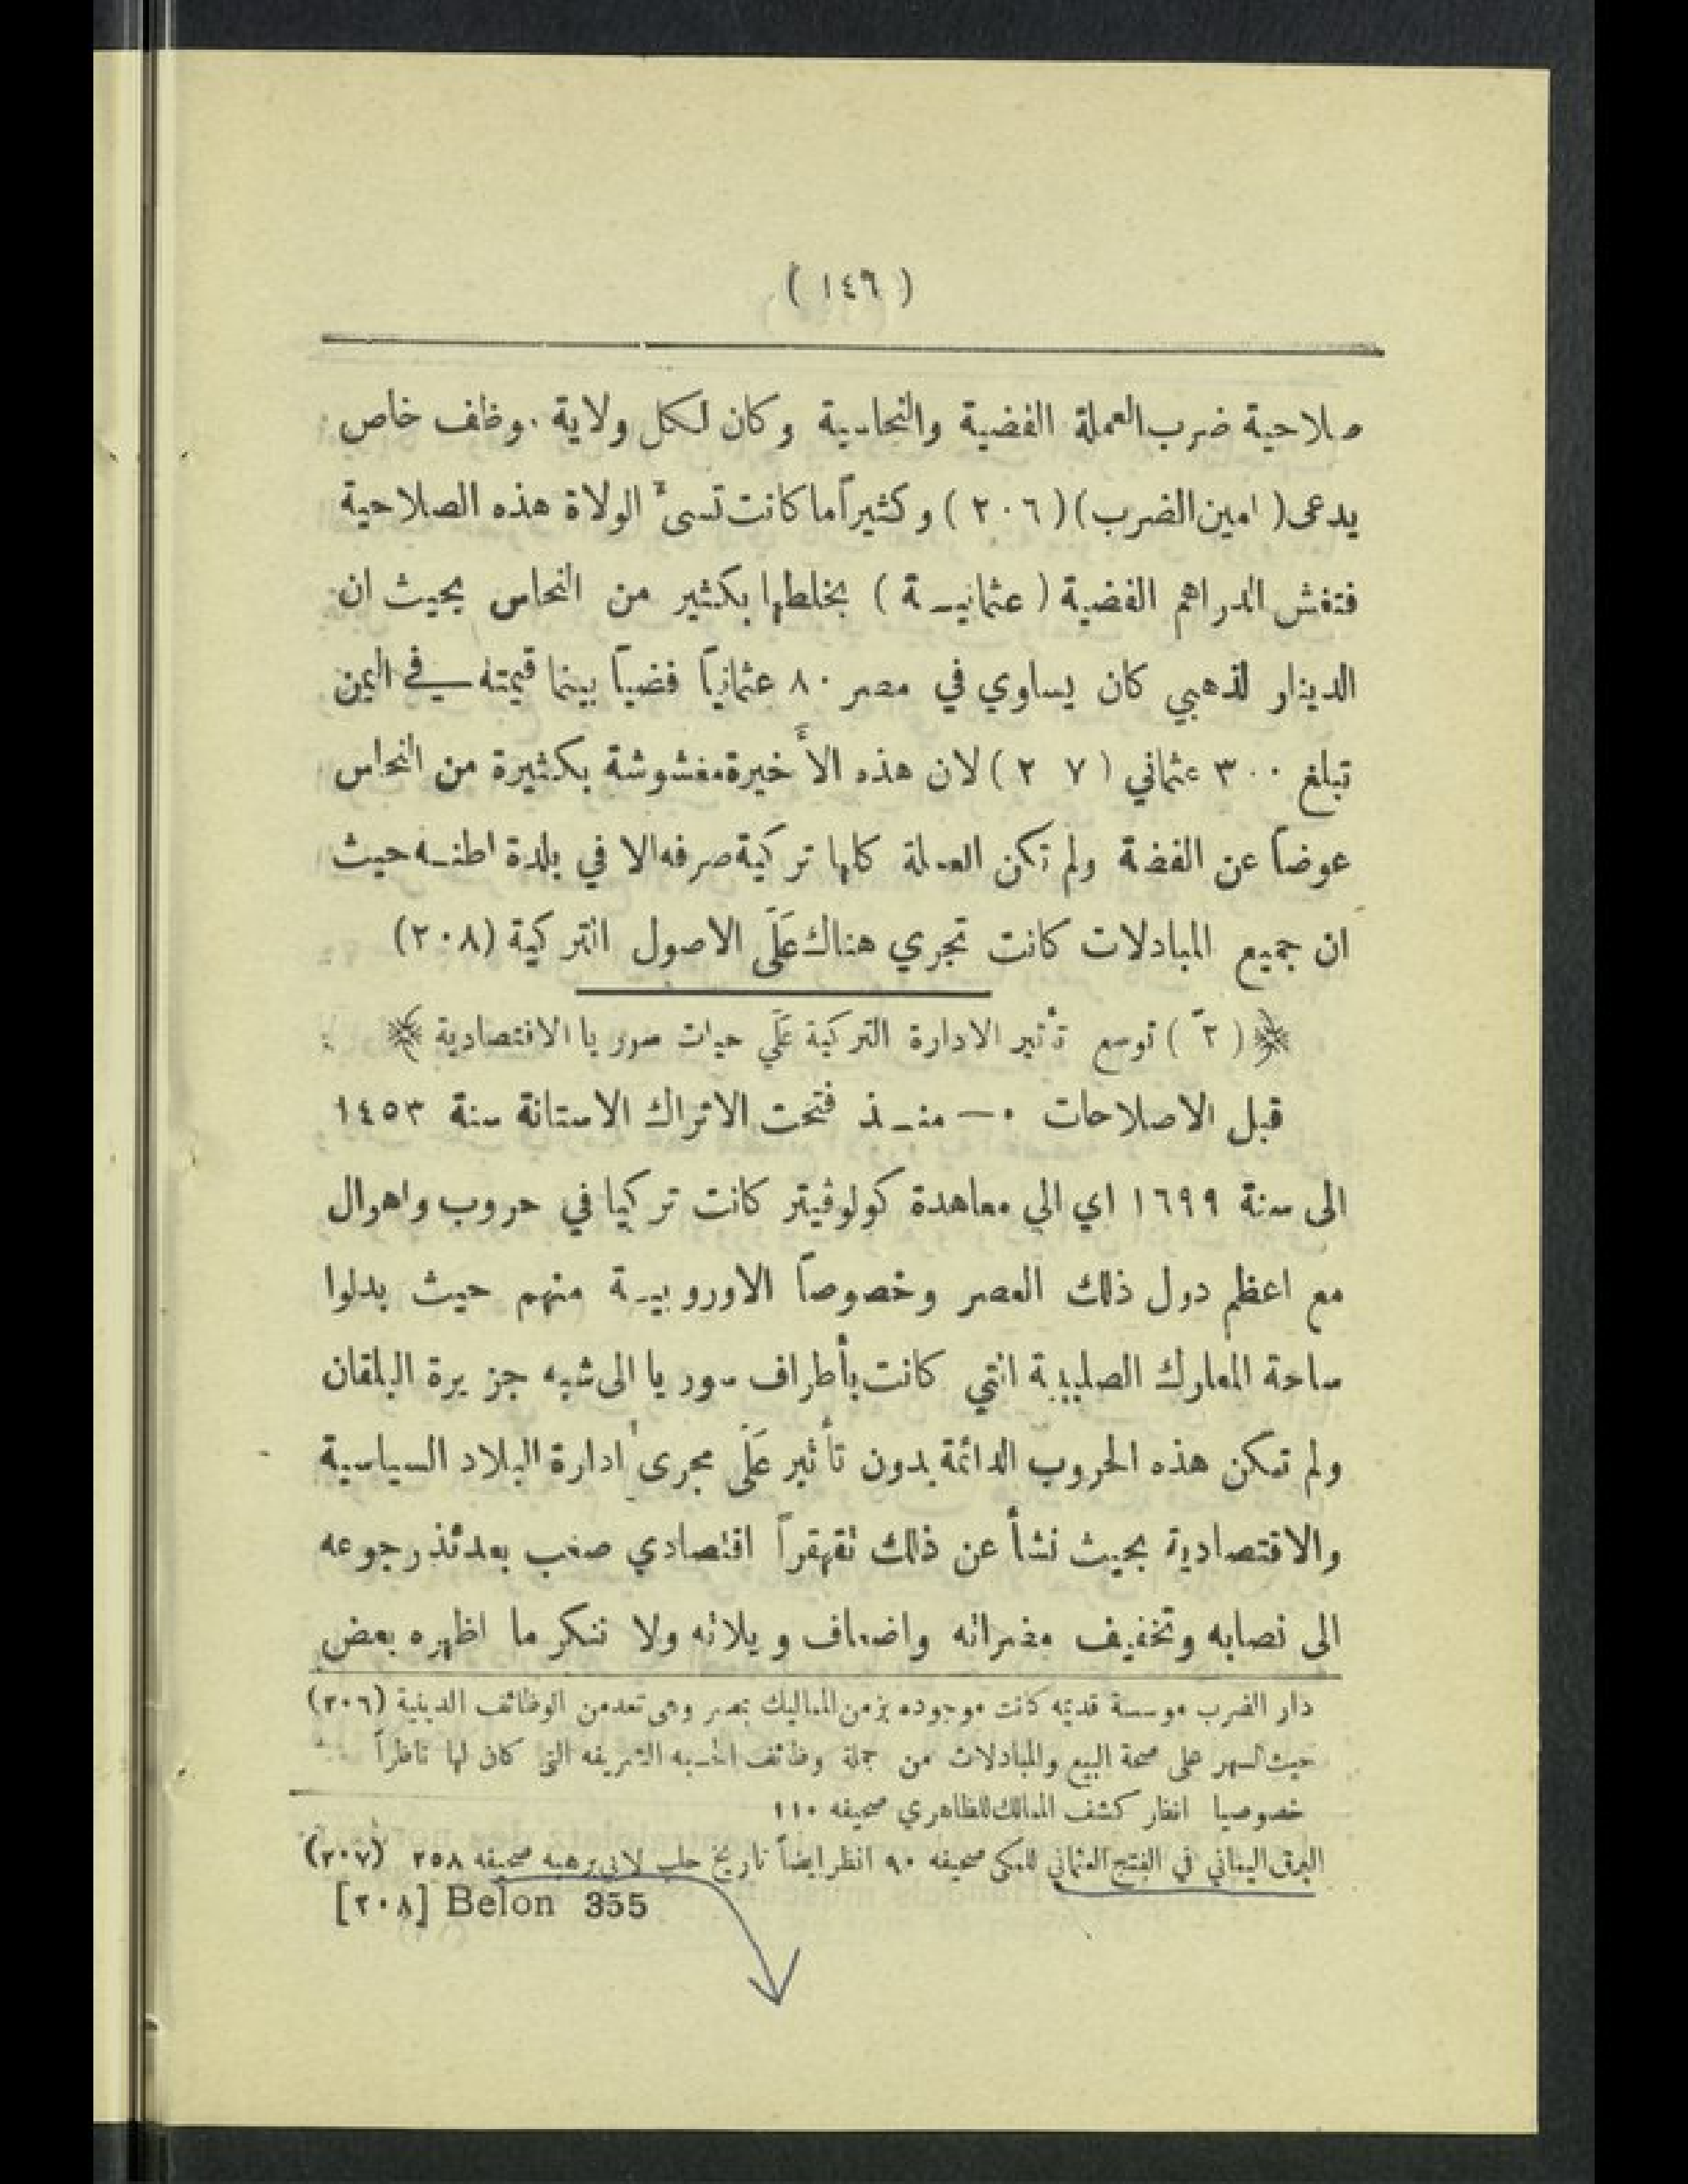 ( ١٤٦ )
صلاحية ضرب العملة الفضية والنحاسية وكان لكل ولاية .وظف خاص
يدعى ( امين الضرب ) ( ٢٠٦ ) وكثيراً ما كانت تسئ الولاة هذه الصلاحية
فتغش الدراهم الفضية ( عثمانيـة ) بخلطها بكثير من النحاس بحيث ان
الدينار لذهبي كان يساوي في مصر ٨٠ عثمانياً فضياً بينما قيمته في اليمن
تبلغ ٣٠٠ عثماني ( ٢ ٧ ) لان هذه الأخيرة مغشوشة بكثيرة من النحاس
عوضاً عن الفضة ولم تكن العملة كلها تركية صرفه الا في بلدة اطنـه حيث
ان جميع المبادلات كانت تجري هناك عَلَى الاصول التركية (٢٠٨)
( ٢ ) توسع تأثير الادارة التركية عَلَى حيات سوريا الاقتصادية
قبل الاصلاحات ٠— منـذ فتحت الاتراك الاستانة سنة ١٤٥٣
الى سنة ١٦٩٩ اي الي معاهدة كولوفيتر كانت تركيا في حروب واهوال
مع اعظم دول ذلك العصر وخصوصاً الاوروبيـة منهم حيث بدلوا
ساحة المعارك الصليبية التي كانت بأطراف سوريا الى شبه جزيرة البلقان
ولم تكن هذه الحروب الدائمة بدون تأثير عَلَى مجرى ادارة البلاد السياسية
والاقتصادية بحيث نشأ عن ذلك تقهقراً اقتصادي صعب بعدئذ رجوعه
الى نصابه وتخفيف مضراته واضعاف ويلاته ولا ننكر ما اظهره بعض
دار الضرب موسسة قديمه كانت موجوده بزمن المماليك بمصر وهى تعد من الوظائف الدينية (٢٠٦)
حيث السهر على صحة البيع والمبادلات من جملة وظائف الحسبه الشريفه التى كان لها ناظراً
خصوصيا انظار كشف الممالك للظاهري صحيفه ١١٠
البرق اليماني في الفتح العثماني للمكى صحيفه ٩٠ انظر ايضاً تاريخ حلب لابي برهبه صحيفه ٢٥٨ (٢٠٧)
[٢٠٨] Belon 355